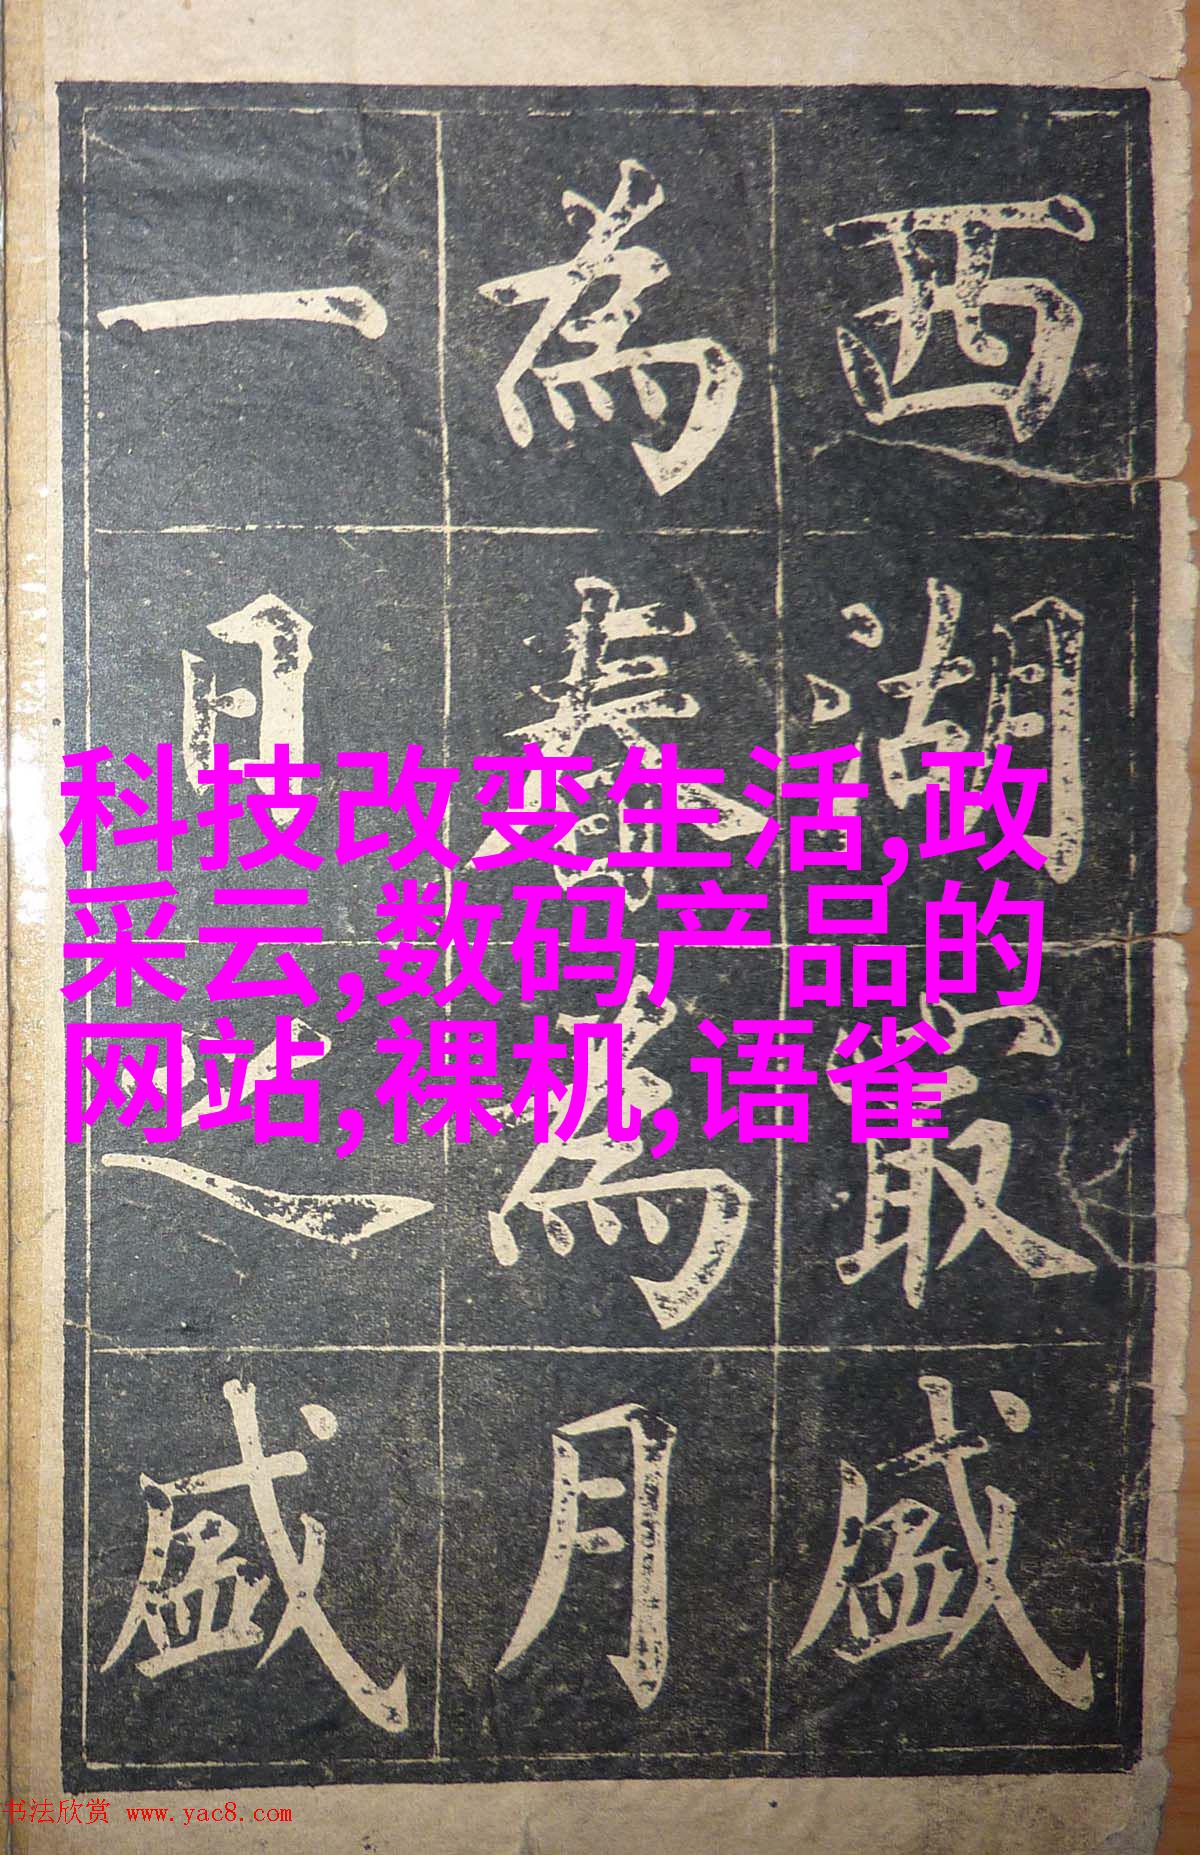 西湖最盛
為春為月
一日之盛
科技改变生活,政
采云,数码产品的
网站,裸机,语雀
书法欣赏 www.yac8.com